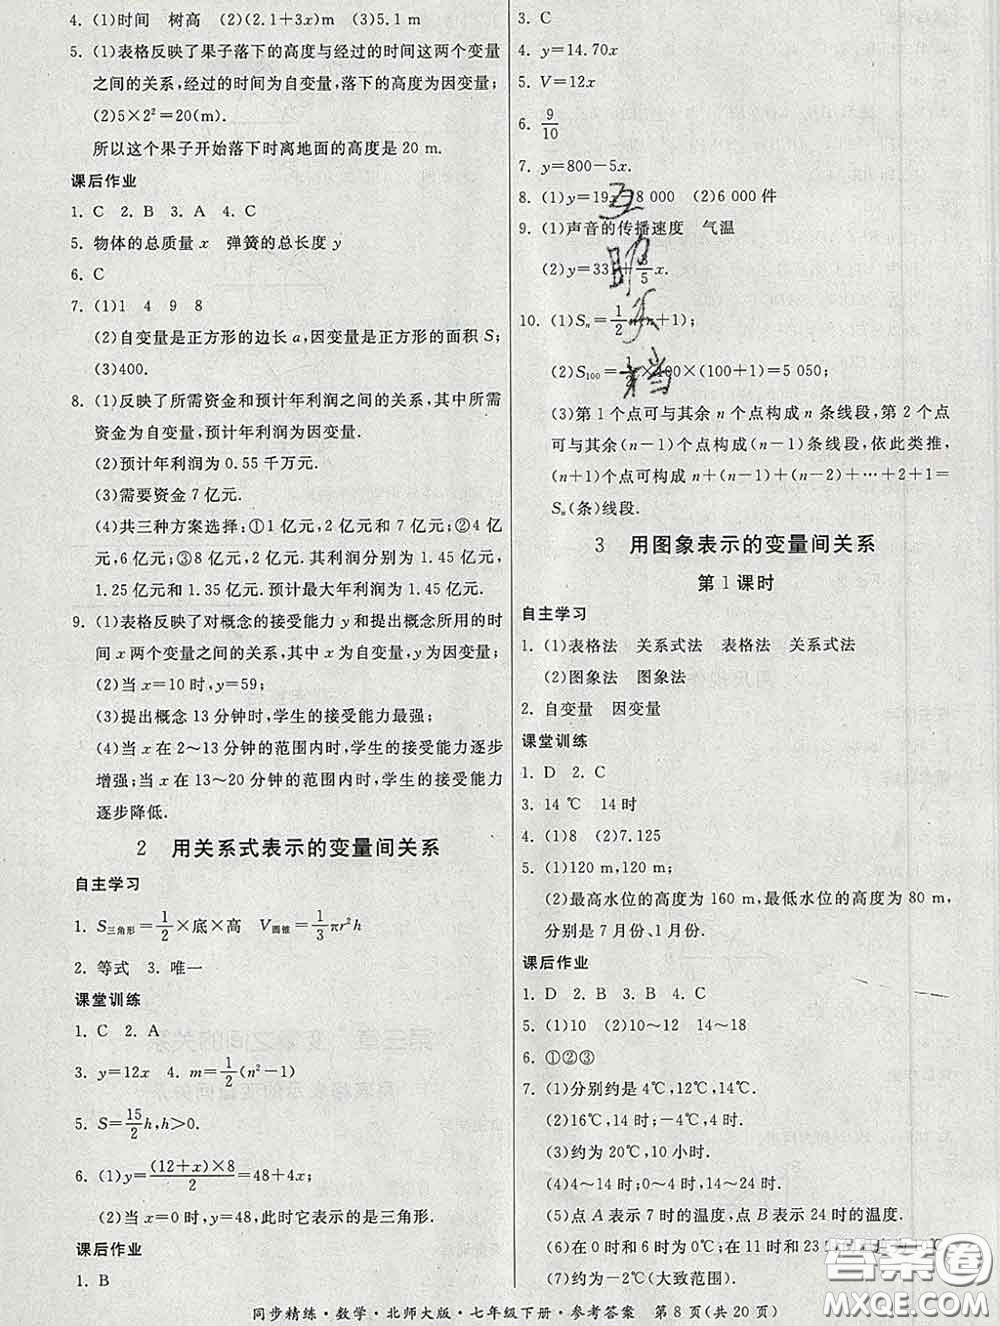 4. (1)时间　树高　(2)(2.1+3x)m　(3)5.1 m
5. (1)表格反映了果子落下的高度与经过的时间这两个变量
之间的关系,经过的时间为自变量,落下的高度为因变量.
(2)5×2²=20(m).
所以这个果子开始落下时离地面的高度是 20 m.
课后作业
1. C　2. B　3. A　4. C
5. 物体的总质量 x　弹簧的总长度 y
6. C
7. (1)1　4　9　8
(2)自变量是正方形的边长 a,因变量是正方形的面积 S;
(3)400.
8. (1)反映了所需资金和预计年利润之间的关系,其中所需
资金为自变量,预计年利润为因变量.
(2)预计年利润为 0.55 千万元.
(3)需要资金 7 亿元.
(4)共三种方案选择:①1 亿元,2 亿元和 7 亿元;②4 亿
元,6 亿元;③8 亿元,2 亿元.其利润分别为 1.45 亿元,
1.25 亿元和 1.35 亿元.预计最大年利润为 1.45 亿元.
9. (1)表格反映了对概念的接受能力 y 和提出概念所用的时
间 x 两个变量之间的关系,其中 x 为自变量,y 为因变量;
(2)当 x=10 时,y=59;
(3)提出概念 13 分钟时,学生的接受能力最强;
(4)当 x 在 2~13 分钟的范围内时,学生的接受能力逐步
增强;当 x 在 13~20 分钟的范围内时,学生的接受能力
逐步降低.
2　用关系式表示的变量间关系
自主学习
1. S三角形=1/2×底×高　V圆锥=1/3πr²h
2. 等式　3. 唯一
课堂训练
1. C　2. A
3. y=12x　4. m=1/2(n²-1)
5. S=15/2h,h>0.
6. (1)y=(12+x)×8/2=48+4x;
(2)当 x=0 时,y=48,此时它表示的是三角形.
课后作业
1. B
3. C
4. y=14.70x
5. V=12x
6. 9/10
7. y=800-5x.
8. (1)y=19x 8 000　(2)6 000 件
9. (1)声音的传播速度　气温
(2)y=33 + /5x.
10. (1)Sₙ=1/2 n+1);
(2)S₁₀₀= ×100×(100+1)=5 050;
(3)第 1 个点可与其余 n 个点构成 n 条线段,第 2 个点
可与其余(n-1)个点构成(n-1)条线段,依此类推,
(n+1)个点可构成 n+(n-1)+(n-2)+…+2+1=
Sₙ(条)线段.
3　用图象表示的变量间关系
第 1 课时
自主学习
1. (1)表格法　关系式法　表格法　关系式法
(2)图象法　图象法
2. 自变量　因变量
课堂训练
1. D　2. C
3. 14 ℃　14 时
4. (1)8　(2)7.125
5. (1)120 m,120 m;
(2)最高水位的高度为 160 m,最低水位的高度为 80 m,
分别是 7 月份、1 月份.
课后作业
1. D　2. B　3. B　4. C
5. (1)10　(2)10~12　14~18
6. ①②③
7. (1)分别约是 4℃,12℃,14℃.
(2)16℃,14 时;-4℃,4 时.
(3)约为 20℃,10 小时.
(4)4~14 时;0~4 时,14~24 时.
(5)点 A 表示 7 时的温度,点 B 表示 24 时的温度.
(6)在 0 时和 6 时为 0℃;在 11 时和 23
(7)约为-2℃(大致范围).
同步精练·数学·北师大版·七年级下册·参考答案　第 8 页(共 20 页)
互助文档
答案圈
MXQE.COM